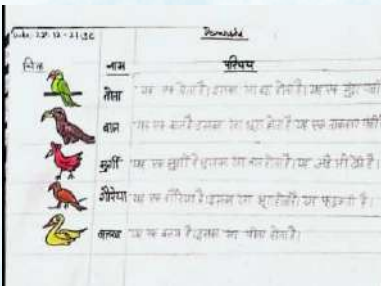 चित्र नाम परिचय
तोता यह एक तोता है। इसका रंग हरा होता है। यह एक सुंदर पक्षी
बाज यह एक बाज है। इसका रंग भूरा होता है। यह एक ताकतवर पक्षी
मुर्गी यह एक मुर्गी है। इसका रंग लाल होता है। यह अंडे भी देती है।
गौरैया यह एक गौरैया है। इसका रंग भूरा होता है। यह फुदकती है।
बतख यह एक बतख है। इसका रंग पीला होता है।